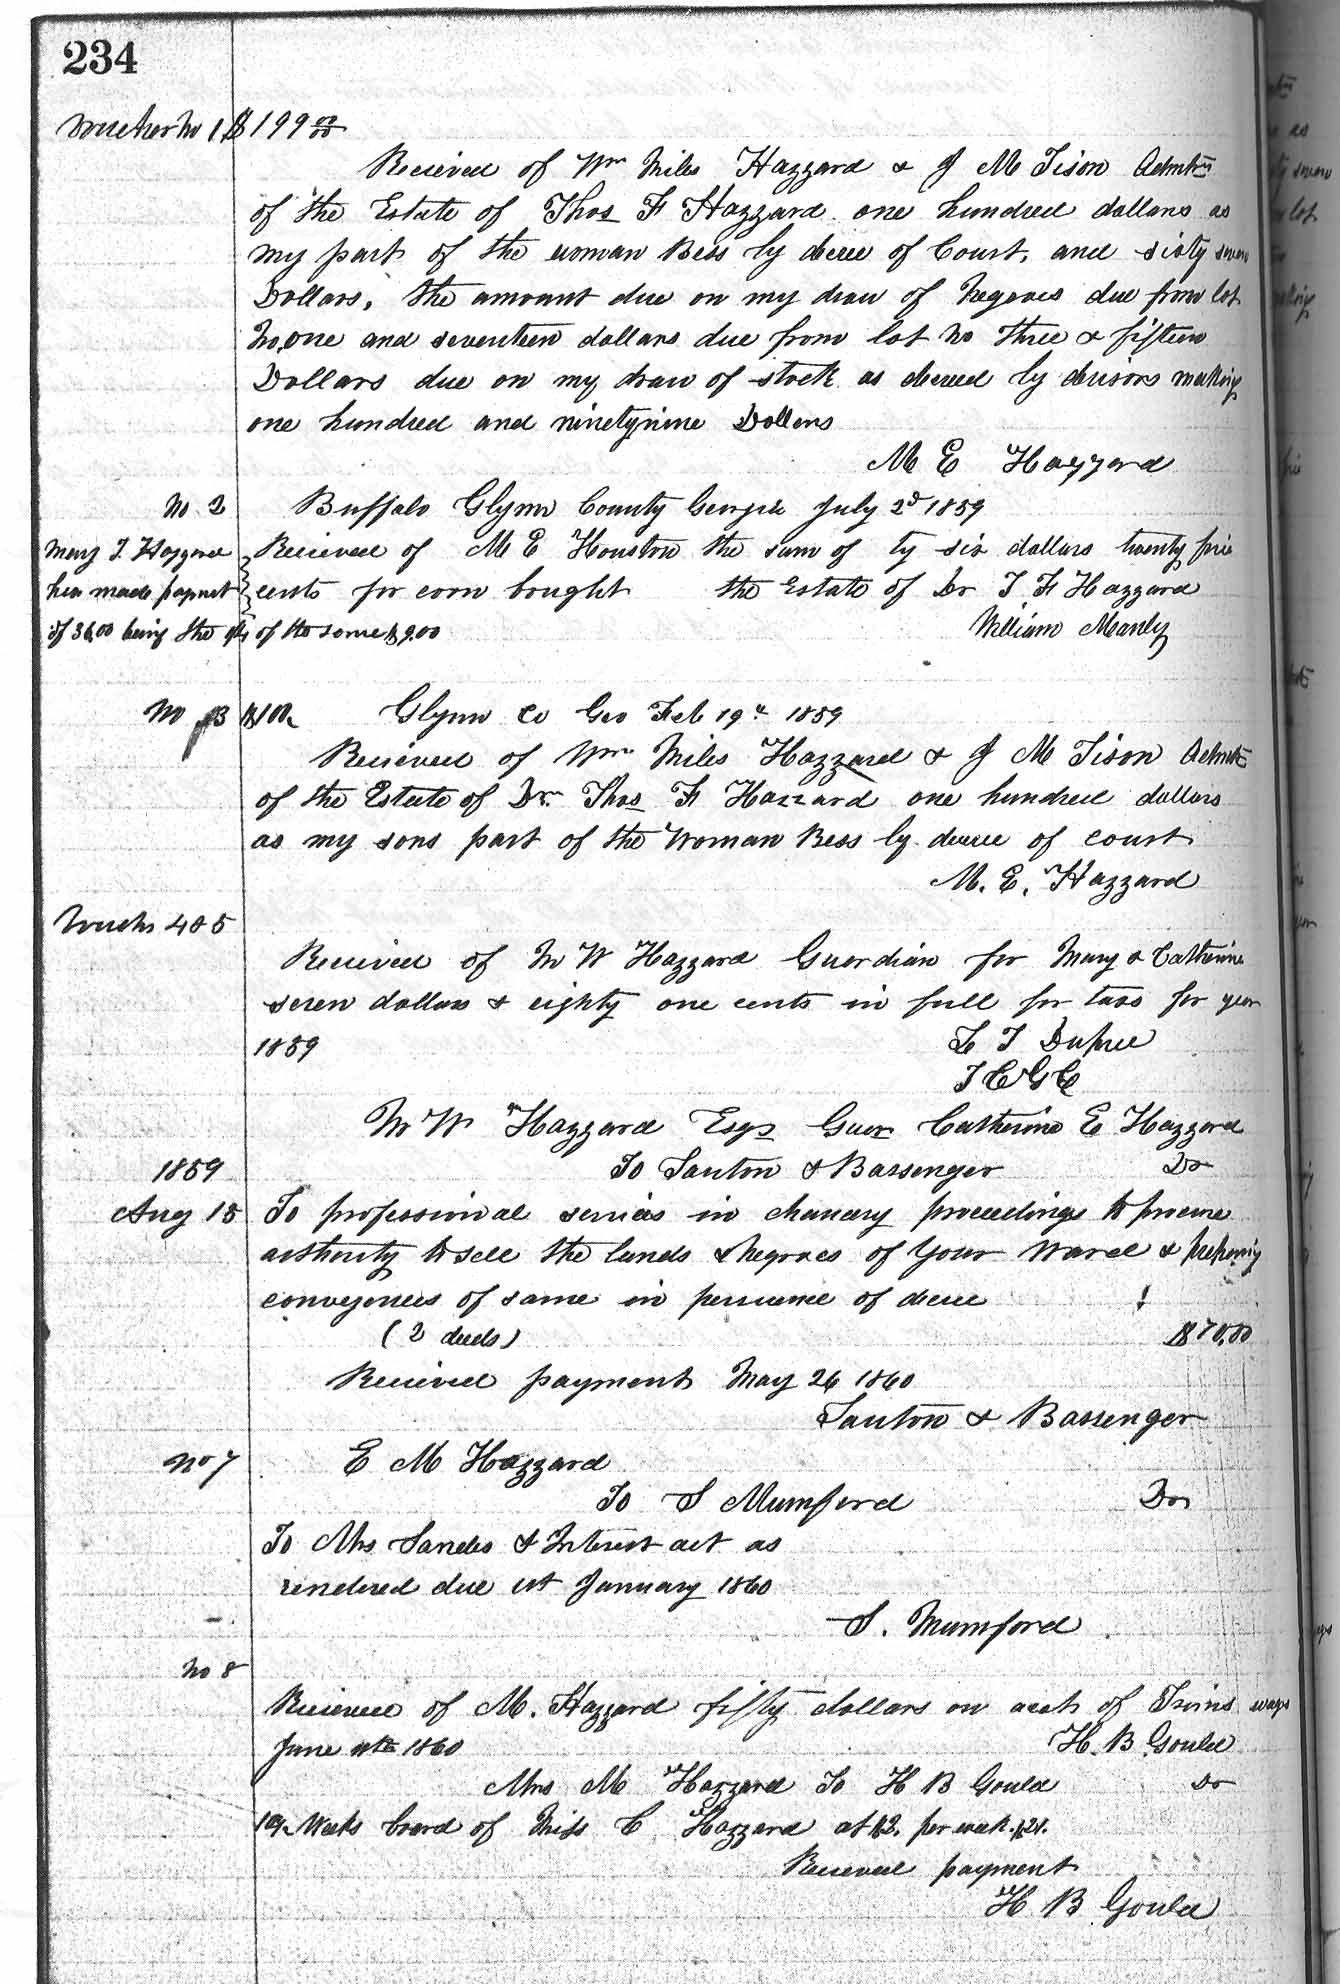 234
Voucher No 1 $199 00
Recieved of Wm Miles Hazzard & J M Tison Admtrs
of the Estate of Thos F Hazzard one hundred dollars as
my part of the woman Bess by decree of Court, and sixty seven
Dollars, the amount due on my draw of Negroes due from lot
No, one and seventeen dollars due from lot No three & fifteen
Dollars due on my draw of stock as decreed by devisors making
one hundred and ninetynine Dollars
M E Hazzard
No 2 Buffalo Glynn County Georgia July 2d 1859
Mary T Hazzard Recieved of M E Houston the sum of ty six dollars twenty five
has made payment cents for corn bought the Estate of Dr T F Hazzard
of 36,00 being the of the same $9.00 William Manly
No 3 $100 Glynn Co Geo Feb 19th 1859
Recieved of Wm Miles Hazzard & J M Tison Admtrs
of the Estate of Dr Thos F Hazzard one hundred dollars
as my sons part of the Woman Bess by decree of court
M. E. Hazzard
Vouchr 4 & 5
Recieved of M W Hazzard Guardian for Mary & Catherine
seven dollars & eighty one cents in full for taxs for year
1859 Dupree
T C G C
M W Hazzard Esqr Guar Catherine E Hazzard
1859 To & Bassenger Dr
Aug 15 To professional servics in chancery proceedings to procure
authority to sell the lands & Negroes of your Ward & prepering
conveyences of same in persuence of decree
(2 deeds) $70,00
Recieved payment May 26 1860
& Bassenger
No 7 E M Hazzard
To S Mumford Dr
To Mrs Sandes & Interest act as
rendered due 1st January 1860
S. Mumford
No 8
Recieved of M. Hazzard fifty dollars on acct of wags
June 1860 H. B Gould
Mrs M Hazzard To H B Gould Dr
Weeks board of Miss C Hazzard at $2, per week.
Recieved payment
H B Gould